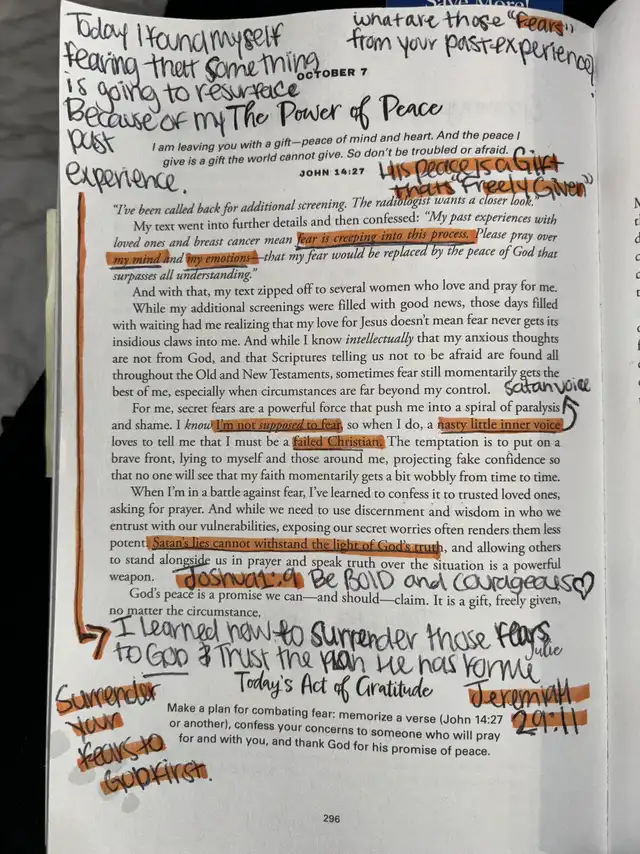 Save More!
Today I found myself
fearing that something
is going to resurface
Because of my
past
experience.
what are those "Fears"
from your past experience?
OCTOBER 7
The Power of Peace
I am leaving you with a gift—peace of mind and heart. And the peace I
give is a gift the world cannot give. So don't be troubled or afraid.
JOHN 14:27
His peace is a Gift
thats "Freely Given"
"I've been called back for additional screening. The radiologist wants a closer look."
My text went into further details and then confessed: "My past experiences with
loved ones and breast cancer mean fear is creeping into this process. Please pray over
my mind and my emotions—that my fear would be replaced by the peace of God that
surpasses all understanding."
And with that, my text zipped off to several women who love and pray for me.
While my additional screenings were filled with good news, those days filled
with waiting had me realizing that my love for Jesus doesn't mean fear never gets its
insidious claws into me. And while I know intellectually that my anxious thoughts
are not from God, and that Scriptures telling us not to be afraid are found all
throughout the Old and New Testaments, sometimes fear still momentarily gets the
best of me, especially when circumstances are far beyond my control.
satan voice
For me, secret fears are a powerful force that push me into a spiral of paralysis
and shame. I know I'm not supposed to fear, so when I do, a nasty little inner voice
loves to tell me that I must be a failed Christian. The temptation is to put on a
brave front, lying to myself and those around me, projecting fake confidence so
that no one will see that my faith momentarily gets a bit wobbly from time to time.
When I'm in a battle against fear, I've learned to confess it to trusted loved ones,
asking for prayer. And while we need to use discernment and wisdom in who we
entrust with our vulnerabilities, exposing our secret worries often renders them less
potent. Satan's lies cannot withstand the light of God's truth, and allowing others
to stand alongside us in prayer and speak truth over the situation is a powerful
weapon.
Joshua 1:9 Be BOLD and courageous
God's peace is a promise we can—and should—claim. It is a gift, freely given,
no matter the circumstance.
I learned how to surrender those fears
to GOD & Trust the plan He has for me
Julie
Today's Act of Gratitude
Jeremiah
29:11
Make a plan for combating fear: memorize a verse (John 14:27
or another), confess your concerns to someone who will pray
for and with you, and thank God for his promise of peace.
Surrender
your
fears to
God First.
296